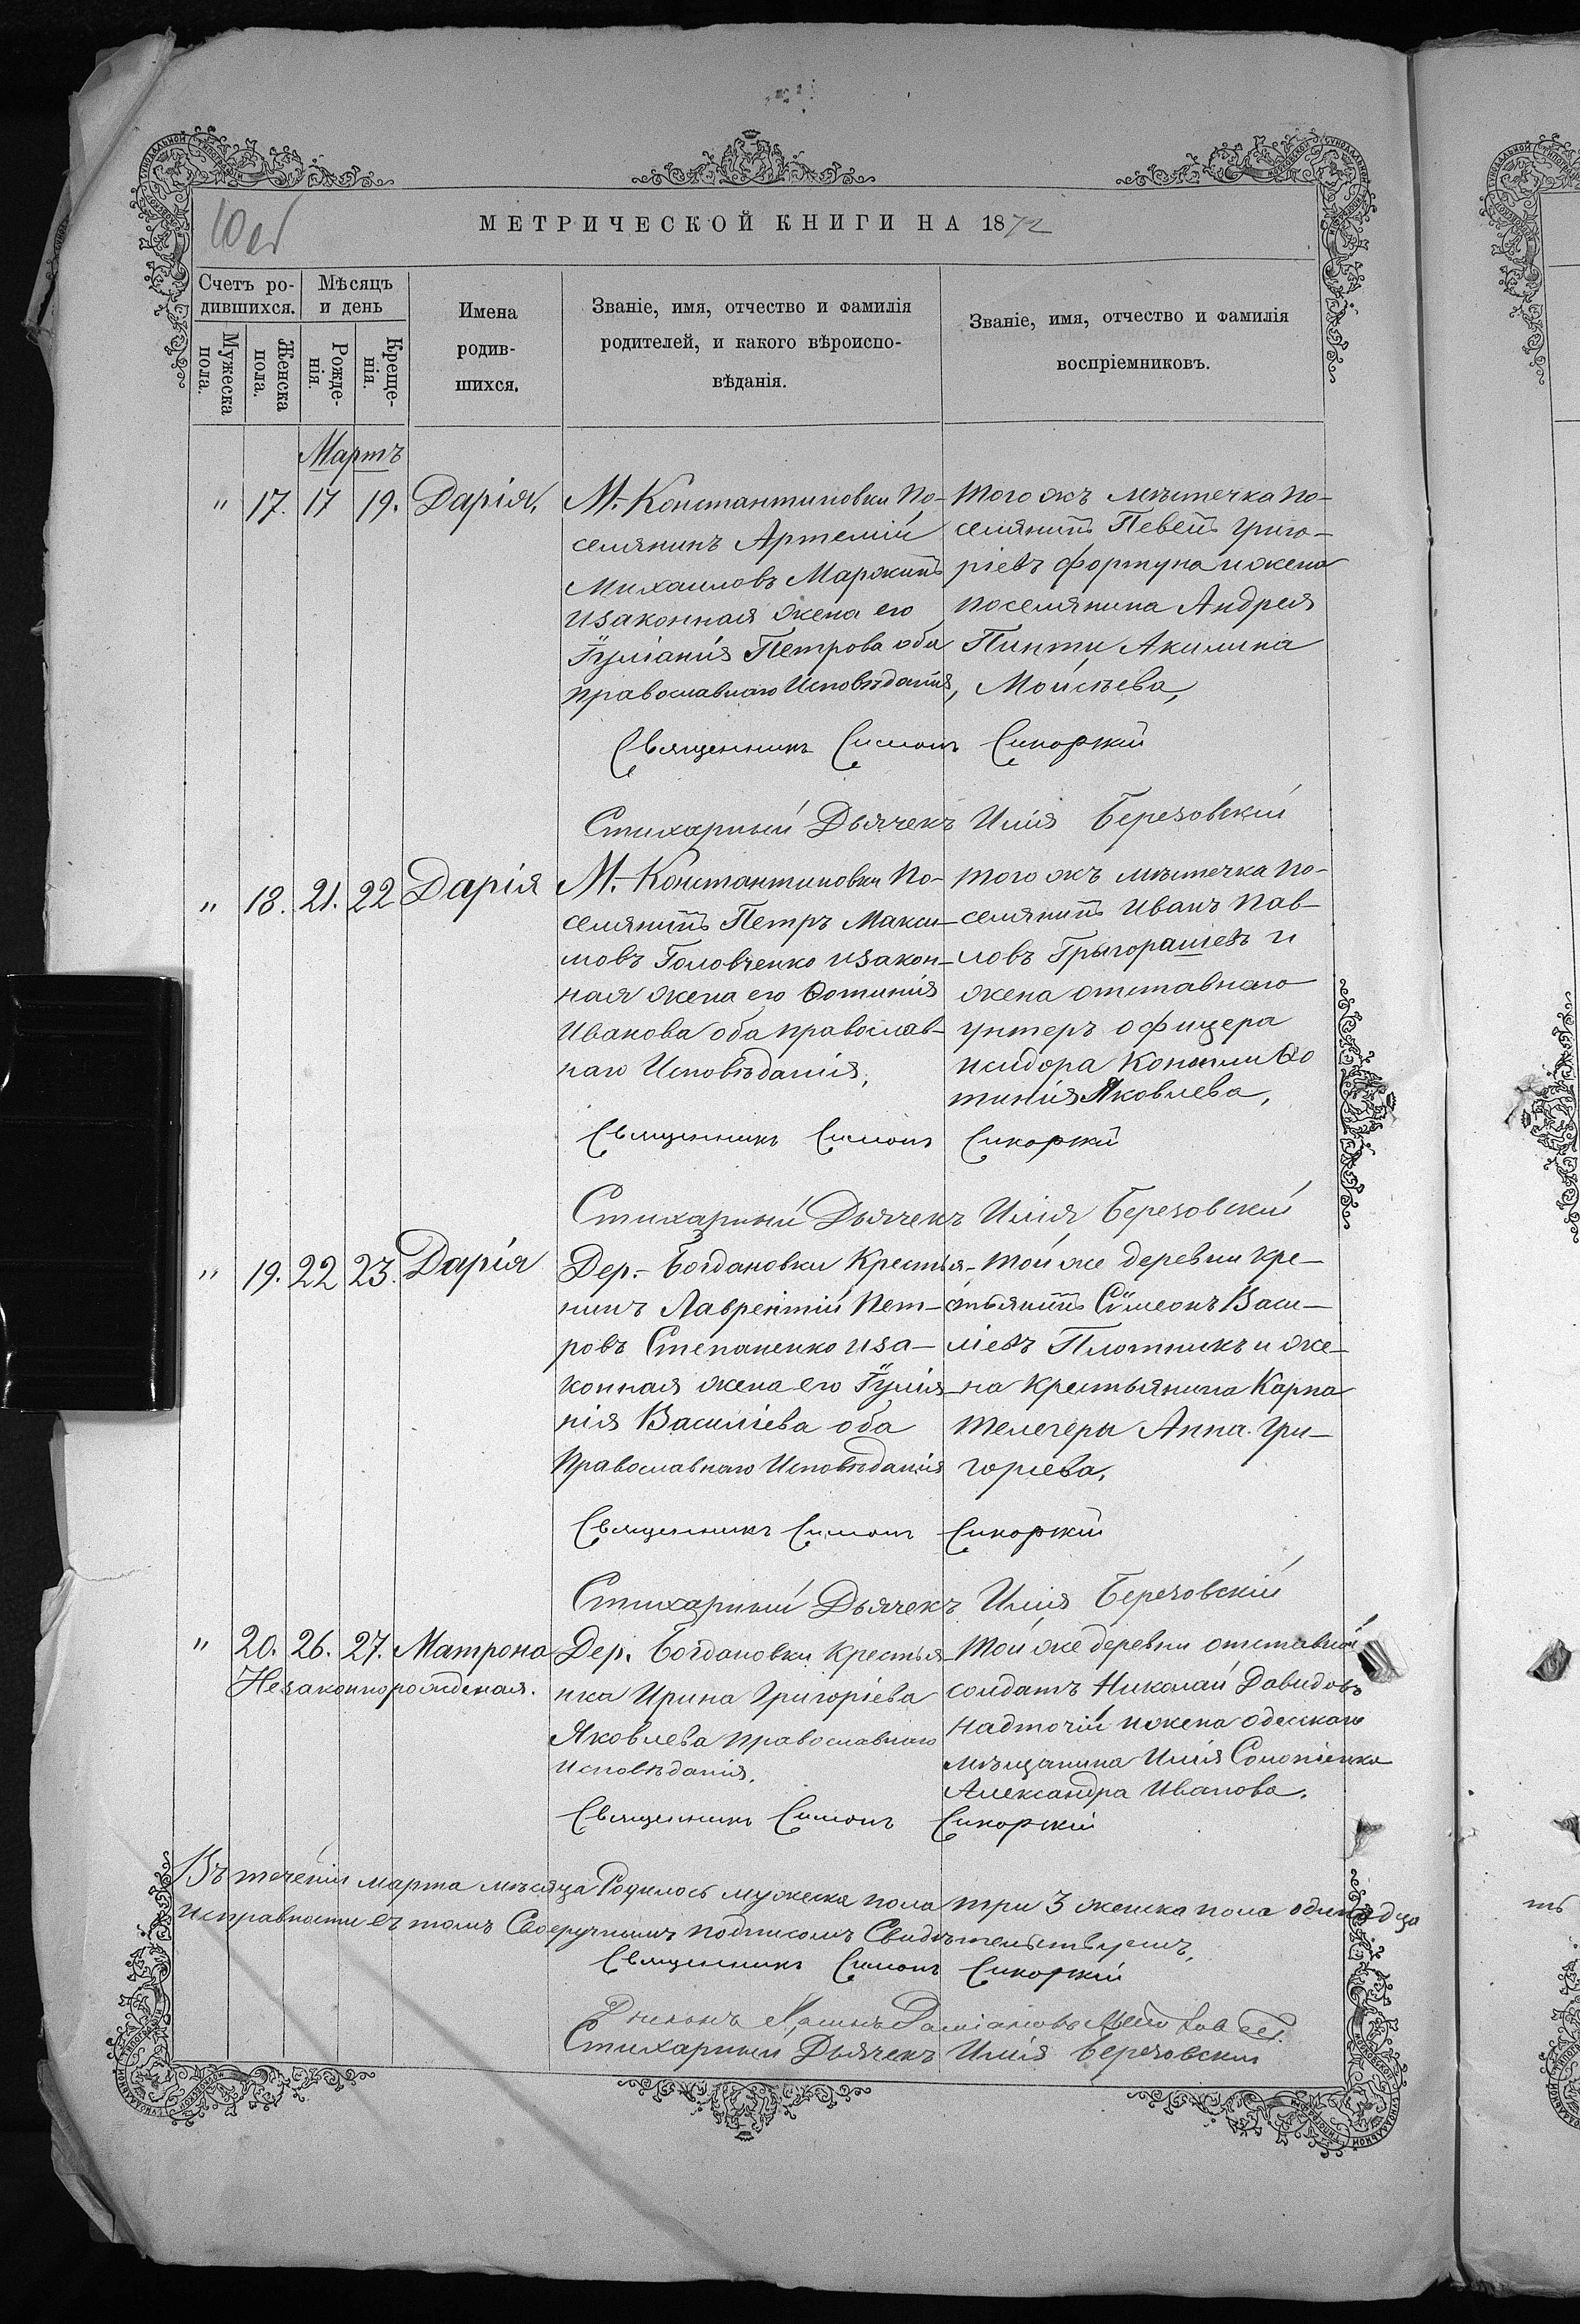 МЕТРИЧЕСКОЙ КНИГИ НА 1872
Счетъ ро-
дившихся.
Мужеска
пола.
Женска
пола.
Мѣсяцъ
и день
Рожде-
нія.
Креще-
нія.
Имена
родив-
шихся.
Званіе, имя, отчество и фамилія
родителей, и какого вѣроиспо-
вѣданія.
Званіе, имя, отчество и фамилія
воспріемниковъ.
Мартъ
" 17. 17 19. Дарія,
М. Константиновки по-
селянинъ Артемій
Михаиловъ Маржинъ
и законная жена его
Іуліанія Петрова оба
православнаго Исповѣданія,
того жъ мѣстечка по-
селянинъ Григо-
ріевъ Фортуна и жена
поселянина Андрея
Пинти Акилина
Моисѣева,
Священникъ Симонъ Сикорскій
Стихарный Дьячекъ Илія Березовскій
" 18. 21. 22 Дарія
М. Константиновки по-
селянинъ Петръ Макси-
мовъ Головченко и закон-
ная жена его Ѳотинія
Иванова оба православ-
наго Исповѣданія,
того жъ мѣстечка по-
селянинъ Иванъ Пав-
ловъ Грыгорашевъ и
жена отставнаго
унтеръ офицера
Исидора Ѳо
тинія Яковлева,
Священникъ Симонъ Сикорскій
Стихарный Дьячекъ Илія Березовскій
" 19. 22 23. Дарія
Дер. Богдановки Крестья-
нинъ Лаврентій Пет-
ровъ Степаненко и за-
конная жена его Іулія
нія Василіева оба
Православнаго Исповѣданія
той же деревни кре-
стьянинъ Сѵмеонъ Васи-
ліевъ Плотникъ и же-
на крестьянина Карпа
Телегеры Анна Гри-
горіева,
Священникъ Симонъ Сикорскій
Стихарный Дьячекъ Илія Березовскій
" 20. 26. 27. Матрона
Незаконнорожденая.
Дер. Богдановки крестья-
нка Ирина Григоріева
Яковлева православнаго
исповѣданія.
Той же деревни отставной
солдатъ Николай Давидовъ
Надточій и жена одесскаго
мѣщанина Илія
Александра Иванова.
Священникъ Симонъ Сикорскій
Въ теченіи марта мѣсяца Родилось мужеска пола три 3 женска пола одинадца
Исправности въ томъ Своеручнымъ подписомъ Свидѣтельствуемъ,
Священникъ Симонъ Сикорскій
Стихарный Дьячекъ Илія Березовскій